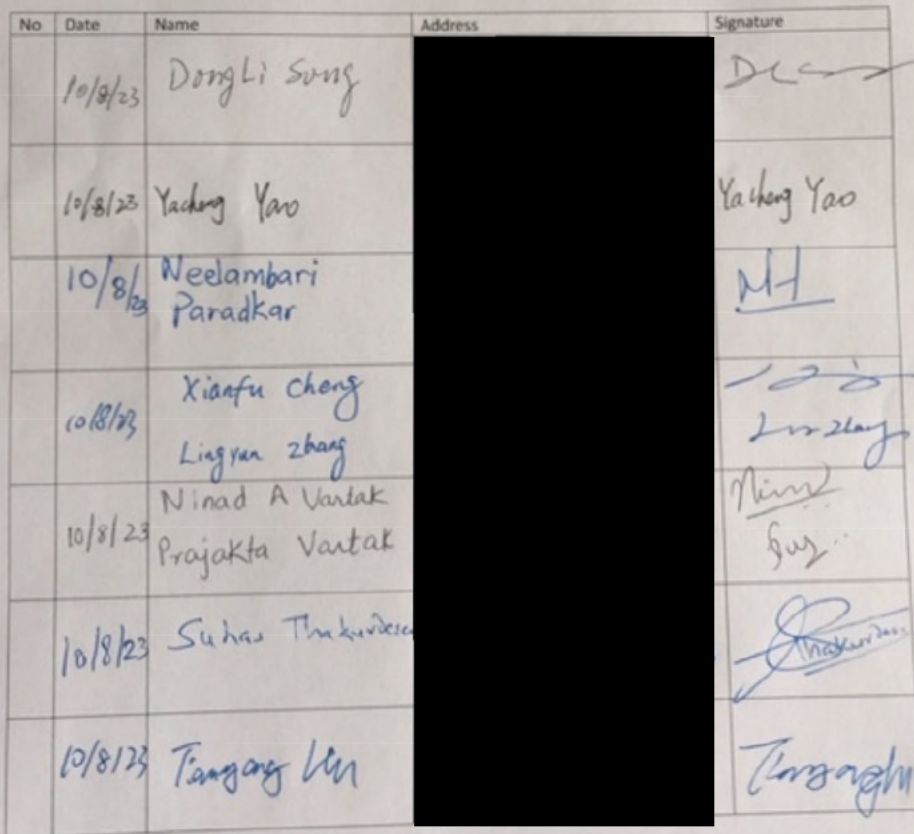 No Date Name Address Signature
10/8/23 DongLi Song
10/8/23 Yacheng Yao Yacheng Yao
10/8/23 Neelambari
Paradkar
10/8/23 Xianfu Cheng
Lingyun Zhang Zhang
10/8/23 Ninad A Vartak
Prajakta Vartak
10/8/23 Suhas Thakurdesai Thakurdesai
10/8/23 Tiangang